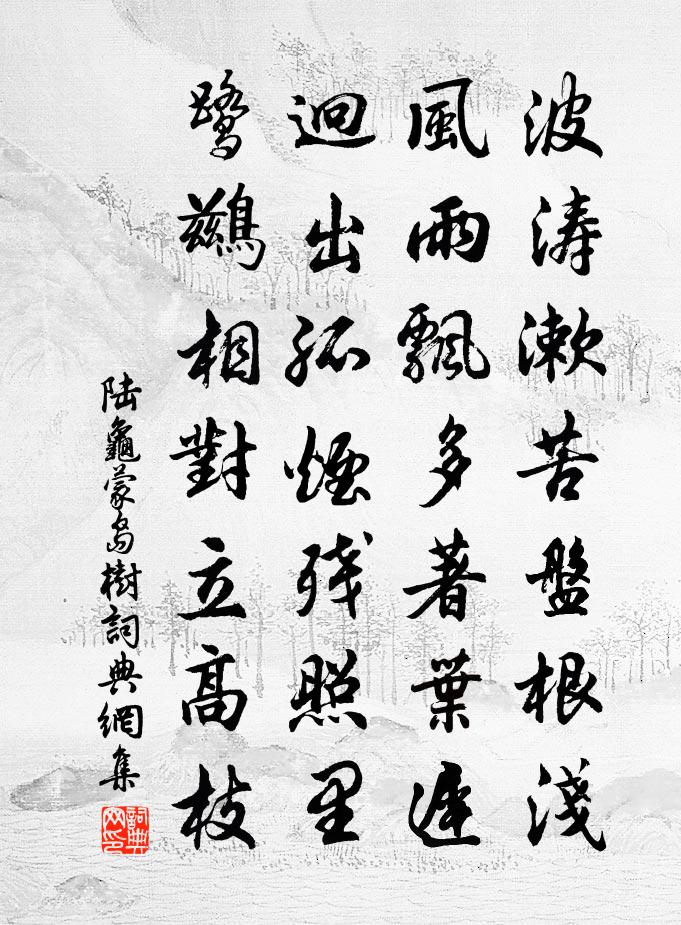 波涛漱苦盤根淺
風雨飄多著葉遲
迥出孤煙残照里
鷺鷀相對立高枝
陆龜蒙島樹詞典網集
詞典网印